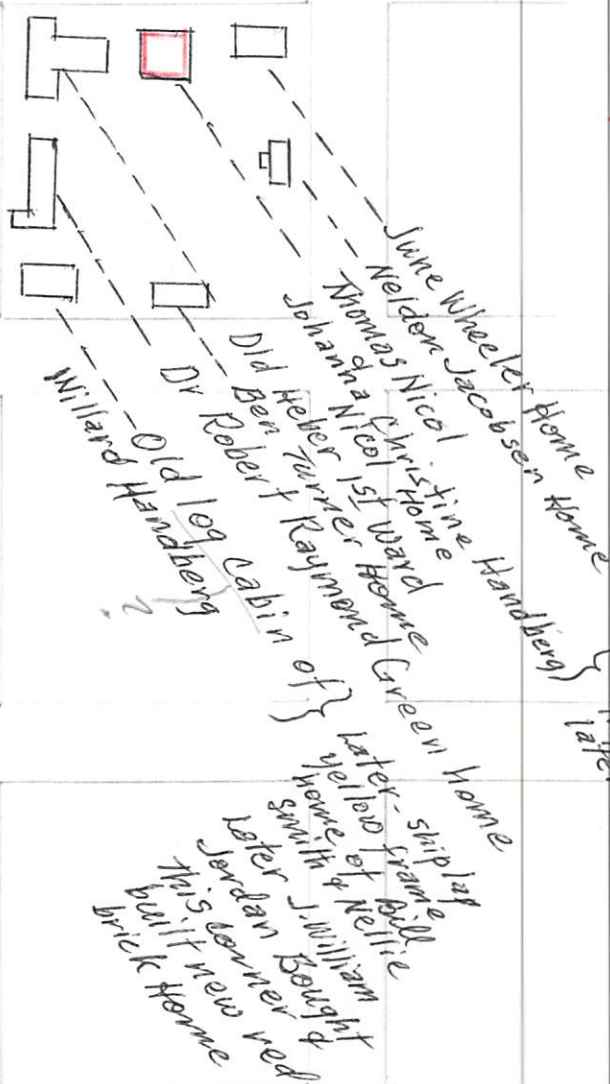 June Wheeler Home
Neldon Jacobsen Home
Thomas Nicol
Johanna Christine Handberg }
Nicol Home
Old Heber 1st Ward
Ben Turner Home
Dr Robert Raymond Green home
Old log cabin of }
Willard Handberg
?
Later - shiplap
yellow frame
home of Bill
Smith & Nellie
Later J. William
Jordan Bought
this corner &
built new red
brick Home
later